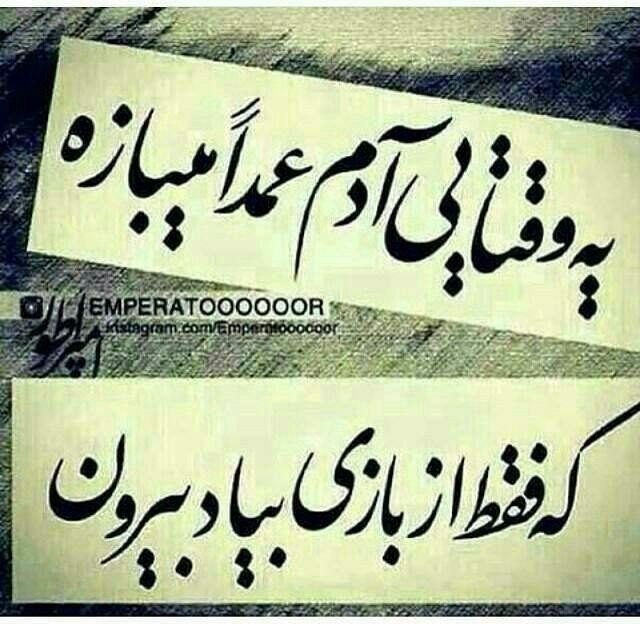 یه وقتایی آدم عمداً میبازه
EMPERATOOOOOOR
instagram.com/Emperatoooooor
امپراطور
که فقط از بازی بیاد بیرون